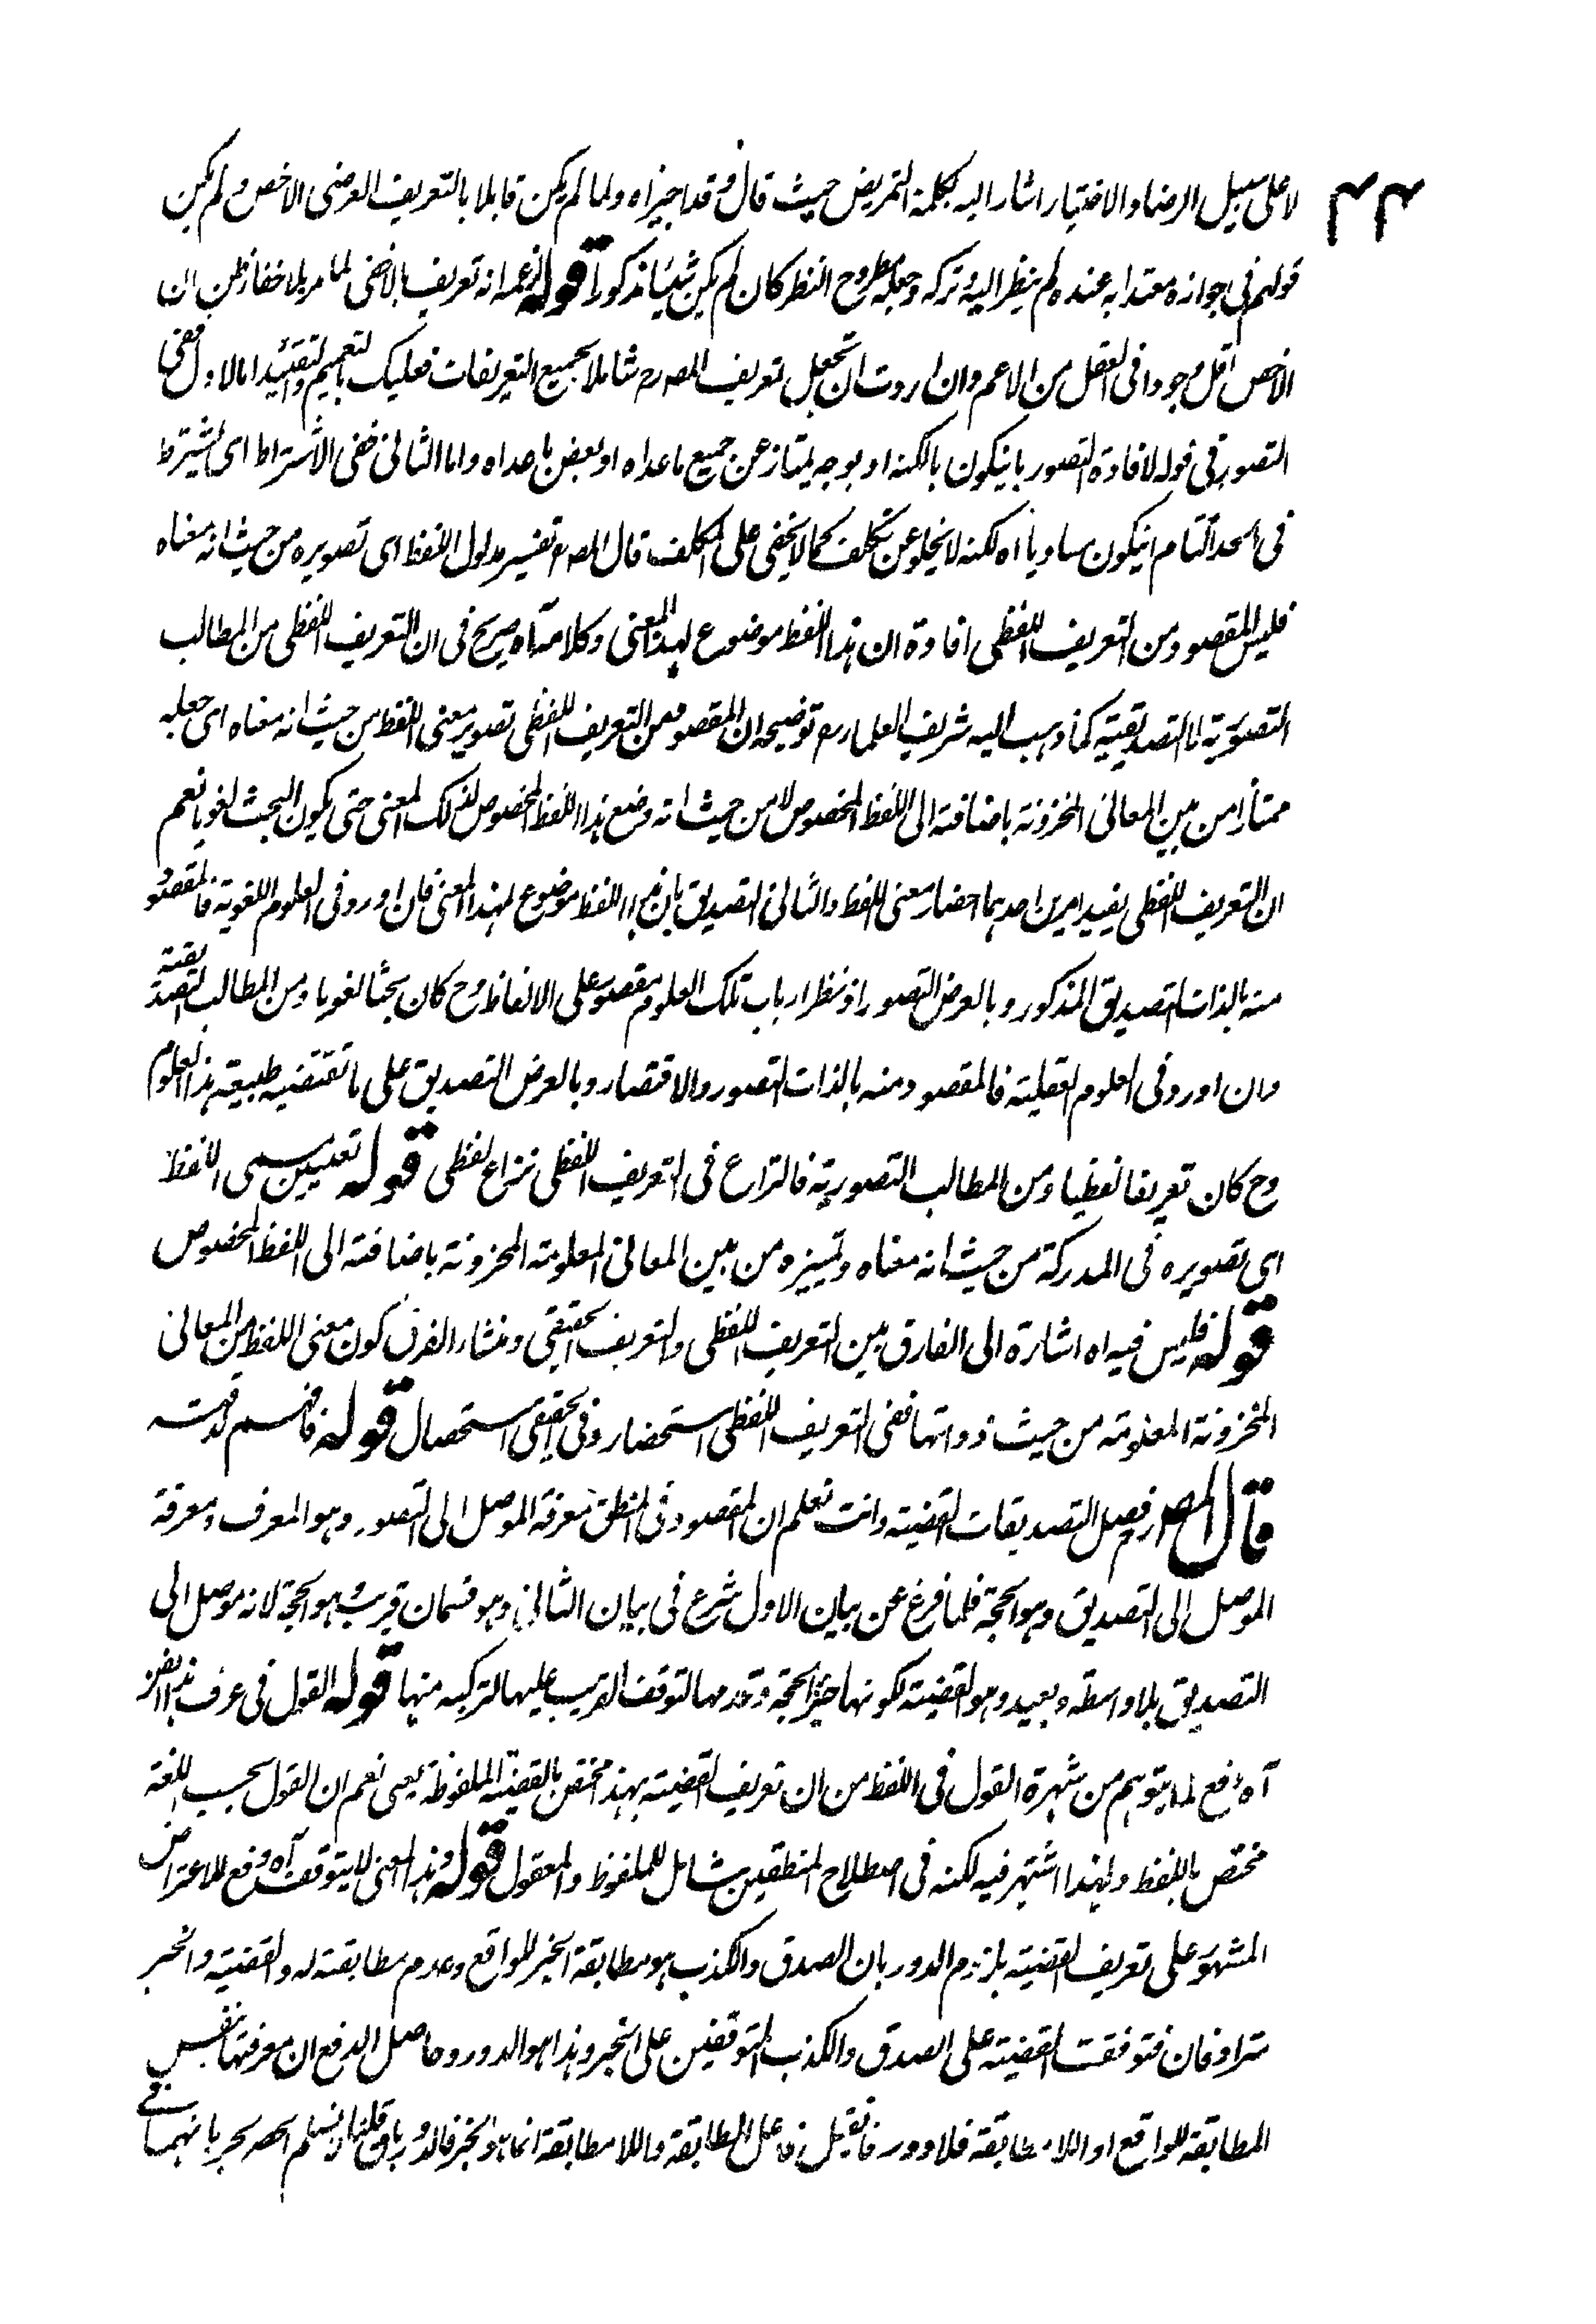 لا على سبيل الرضا والاختيار اشار اليه بكلمة التمريض حيث قال وقد اجيز اه ولما لم يكن قابلا بالتعريف العرضى الاخص ولم يكن
قولهم فى جوازه معتدا به عنده لم ينظر اليه وتركه وجعله مطروح النظر كان لم يكن شيئا مذكورا قوله لزعمه انه تعريف بالاخفى لما مر بلا خفاء ظن ان
الاخص اقل وجودا فى العقل من الاعم وان اردت ان تجعل تعريف المصـ رح شاملا لجميع التعريفات فعليك بالتعميم والتقييد اما الاول ففى
التصور فى قوله لافادة التصور بانيكون بالكنه او بوجه يمتاز عن جميع ماعداه او بعض ما عداه واما الثانى ففى الاشتراط اى يشترط
فى الحد التام انيكون مساويا اه لكنه لا يخلو عن تكلف كما لا يخفى على المكلف قال المصـ رح تفسير مدلول اللفظ اى تصويره من حيث انه معناه
فليس المقصود من التعريف اللفظى افادة ان هذا اللفظ موضوع لهذا المعنى وكلامه اه صريح فى ان التعريف اللفظى من المطالب
التصورية لا التصديقية كما ذهب اليه شريف العلماء رح توضيحه ان المقصود من التعريف اللفظى تصوير معنى اللفظ من حيث انه معناه اى جعله
ممتازا من بين المعانى المخزونة باضافته الى اللفظ المخصوص لا من حيث انه وضع هذا اللفظ المخصوص لذلك المعنى حتى يكون البحث لغويا نعم
ان التعريف اللفظى يفيد امرين احدهما احضار معنى اللفظ والثانى التصديق بان هذا اللفظ موضوع لهذا المعنى فان اورد فى العلوم اللغوية فالمقصود
منه بالذات التصديق المذكور وبالعرض التصور اذ نظر ارباب تلك العلوم مقصور على الالفاظ وح كان بحثا لغويا ومن المطالب التصديقية
وان اورد فى العلوم العقلية فالمقصود منه بالذات التصور والاقتصار وبالعرض التصديق على ما تقتضيه طبيعة هذا العلوم
وح كان تعريفا لفظيا ومن المطالب التصورية فالنزاع فى التعريف اللفظى نزاع لفظى قوله تعيين مسمى اللفظ
اى تصويره فى المدركة من حيث انه معناه وتمييزه من بين المعانى المعلومة المخزونة باضافته الى اللفظ المخصوص
قوله فليس فيه اه اشارة الى الفارق بين التعريف اللفظى والتعريف الحقيقى ومنشاء الفرق كون معنى اللفظ من المعانى
المخزونة المعلومة من حيث ذواتها ففى التعريف اللفظى استحضار وفى الحقيقى استحصال قوله فافهم لدقته
قال المصـ رح فصل التصديقات القضية وانت تعلم ان المقصود فى المنطق معرفة الموصل الى التصور وهو المعرف ومعرفة
الموصل الى التصديق وهو الحجة فلما فرغ عن بيان الاول شرع فى بيان الثانى وهو قسمان قريب وهو الحجة لانه موصل الى
التصديق بلا واسطة وبعيد وهو القضية لكونها جزء الحجة وقدمها لتوقف القريب عليها لتركبه منها قوله القول فى عرف هذا الفن
آه دفع لما يتوهم من شهرة القول فى اللفظ من ان تعريف القضية بهذا مختص بالقضية الملفوظة يعنى نعم ان القول بحسب اللغة
مختص باللفظ ولهذا اشتهر فيه لكنه فى اصطلاح المنطقيين شامل للملفوظ والمعقول قوله وهذا المعنى لا يتوقف آه دفع للاعتراض
المشهور على تعريف القضية بلزوم الدور بان الصدق والكذب هو مطابقة الخبر للواقع وعدم مطابقته له والقضية والخبر
مترادفان فتوقفت القضية على الصدق والكذب المتوقفين على الخبر وهذا هو الدور وحاصل الدفع ان معرفتها بنفس
المطابقة للواقع او اللامطابقة فلا دور فانقيل فاعل المطابقة واللامطابقة انما هو الخبر فالدور باق قلنا لا نسلم الحصر بجريانهما فى